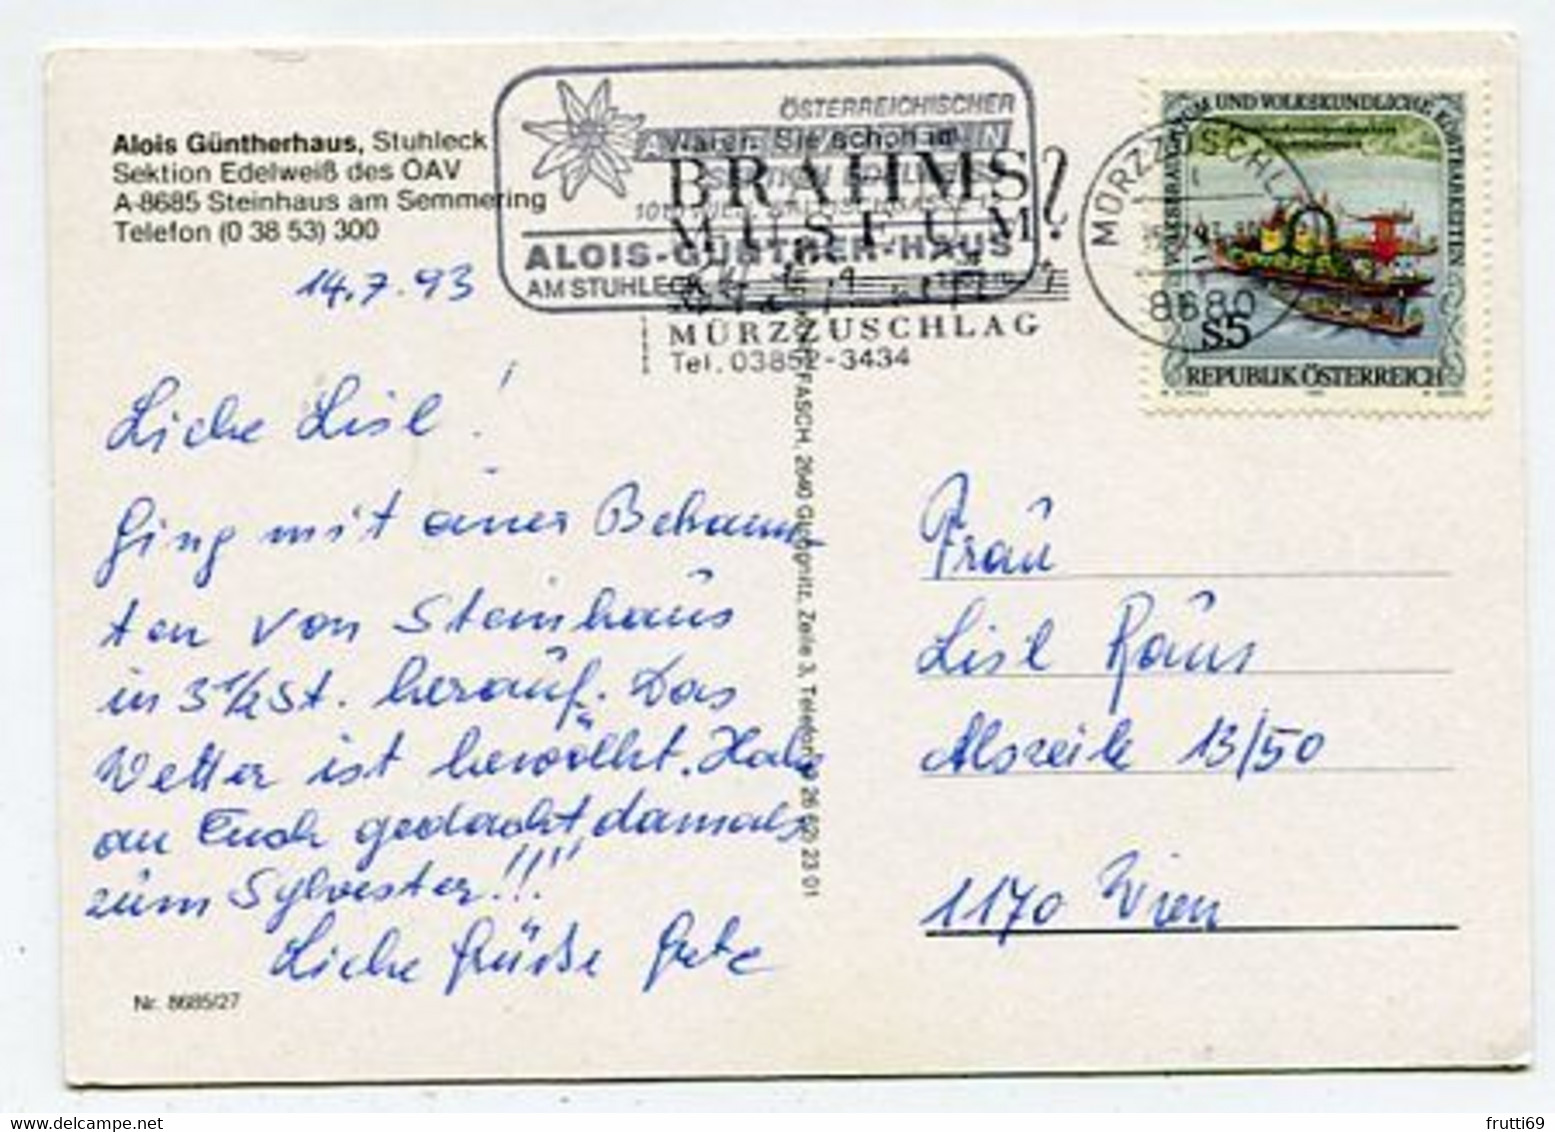 Alois Güntherhaus, Stuhleck
Sektion Edelweiß des ÖAV
A-8685 Steinhaus am Semmering
Telefon (0 38 53) 300
14.7.93
ÖSTERREICHISCHER
ALOIS-GÜNTHER-HAUS
AM STUHLECK
Waren Sie schon im
BRAHMS
MUSEUM?
MÜRZZUSCHLAG
Tel. 03852-3434
MÜRZZUSCHLAG
8680
VOLKSBRAUCHTUM UND VOLKSKUNDLICHE KOSTBARKEITEN
S5
REPUBLIK ÖSTERREICH
Liebe Lisl!
Ging mit einer Bekann-
ten von Steinhaus
in 3 1/2 St. herauf. Das
Wetter ist bewölkt. Habe
an Euch gedacht, damals
zum Sylvester!!!
Liebe Grüße Grete
Nr. 8685/27
FASCH, 2640 Gloggnitz, Zeile 3, Telefon 0 26 62) 23 01
Frau
Lisl Raus
Alszeile 13/50
1170 Wien
frutti69